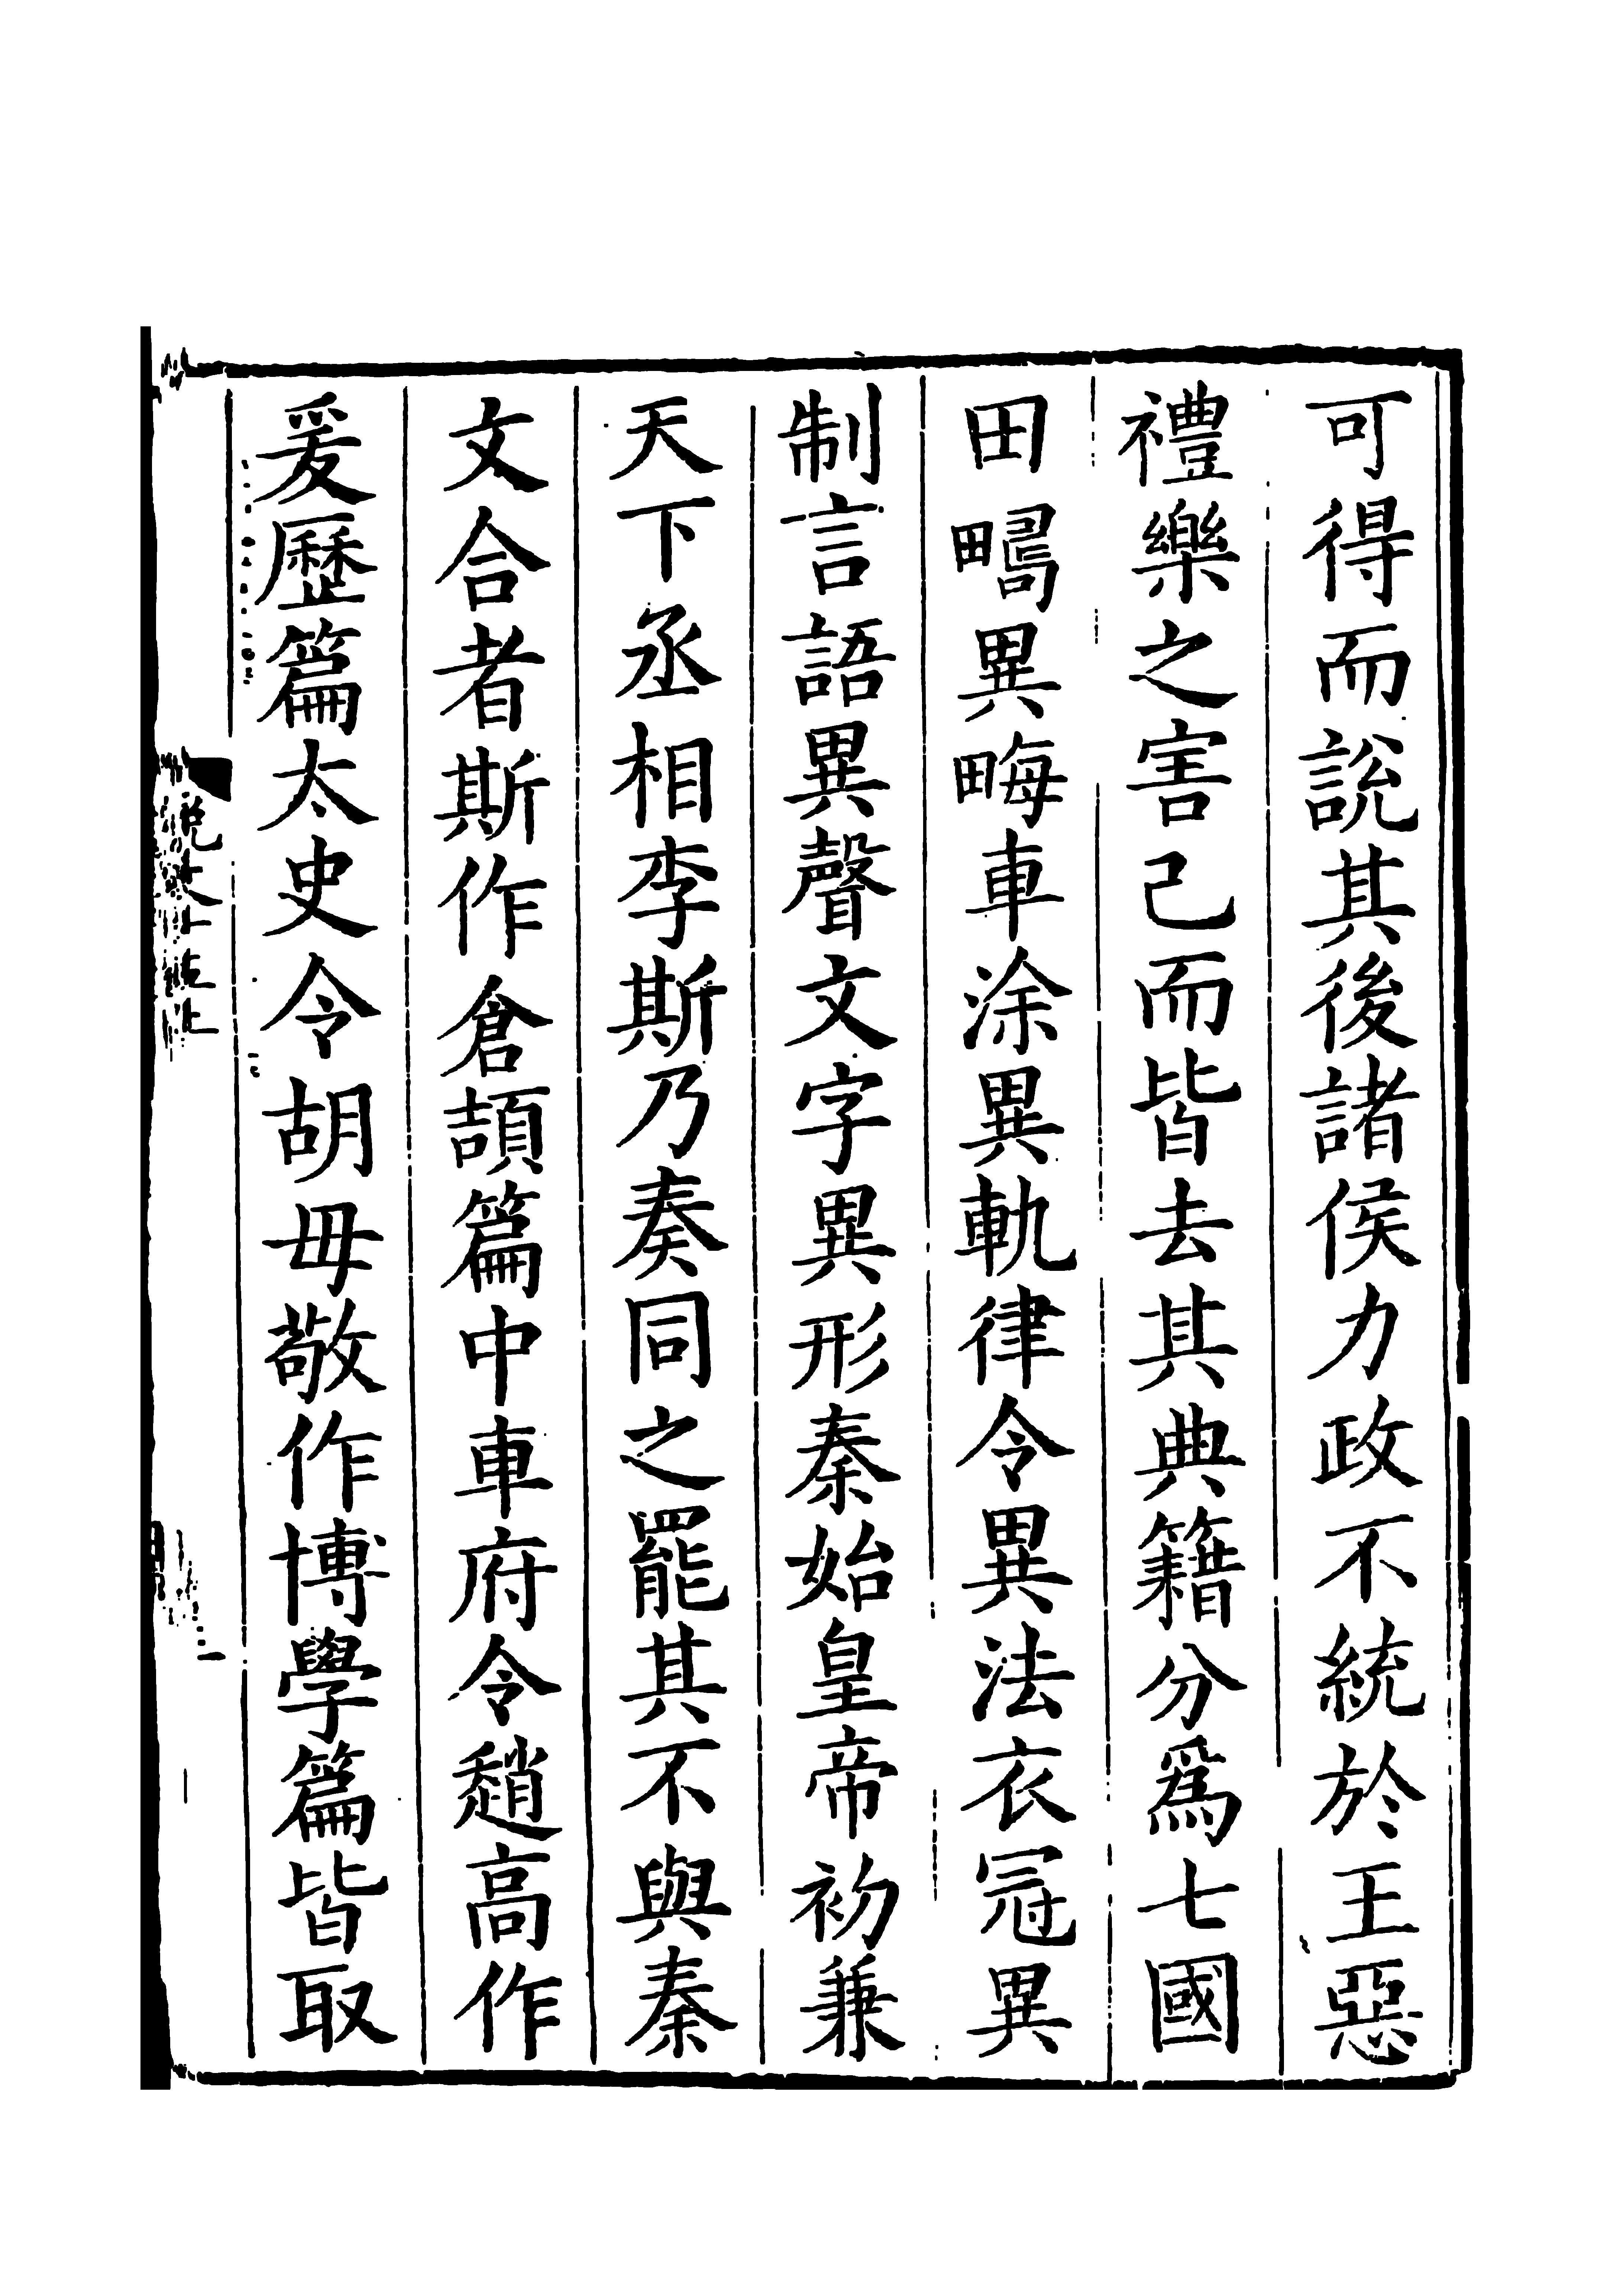 可得而説其後諸侯力政不統於王惡
禮樂之害己而皆去其典籍分爲七國
田疇異畮車涂異軌律令異法衣冠異
制言語異聲文字異形秦始皇帝初兼
天下丞相李斯乃奏同之罷其不與秦
文合者斯作倉頡篇中車府令趙高作
爰歷篇太史令胡毋敬作博學篇皆取